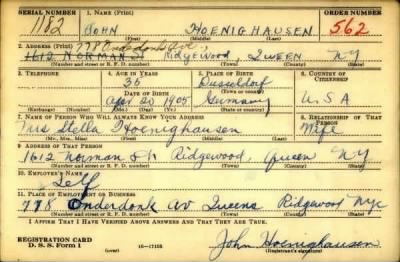 SERIAL NUMBER 1. NAME (Print) ORDER NUMBER
1182 JOHN HOENIGHAUSEN 562
(First) (Middle) (Last)
2. ADDRESS (Print) 778 Onderdonk Ave,
1612 NORMAN St Ridgewood, QUEEN NY
(Number and street or R. F. D. number) (Town) (County) (State)
3. TELEPHONE 4. AGE IN YEARS 5. PLACE OF BIRTH 6. COUNTRY OF CITIZENSHIP
35 Dusseldorf
DATE OF BIRTH (Town or county)
Apr 20 1905 Germany U.S.A
(Exchange) (Number) (Mo.) (Day) (Yr.) (State or country)
7. NAME OF PERSON WHO WILL ALWAYS KNOW YOUR ADDRESS 8. RELATIONSHIP OF THAT PERSON
Mrs Stella Hoenighausen Wife
(Mr., Mrs., Miss) (First) (Middle) (Last)
9. ADDRESS OF THAT PERSON
1612 Norman St Ridgewood, Queen NY
(Number and street or R. F. D. number) (Town) (County) (State)
10. EMPLOYER'S NAME
Self
11. PLACE OF EMPLOYMENT OR BUSINESS
778 Onderdonk av Queens Ridgewood Nyc
(Number and street or R. F. D. number) (Town) (County) (State)
I AFFIRM THAT I HAVE VERIFIED ABOVE ANSWERS AND THAT THEY ARE TRUE.
REGISTRATION CARD
D. S. S. Form 1 16—17105 John Hoenighausen
(Registrant's signature)